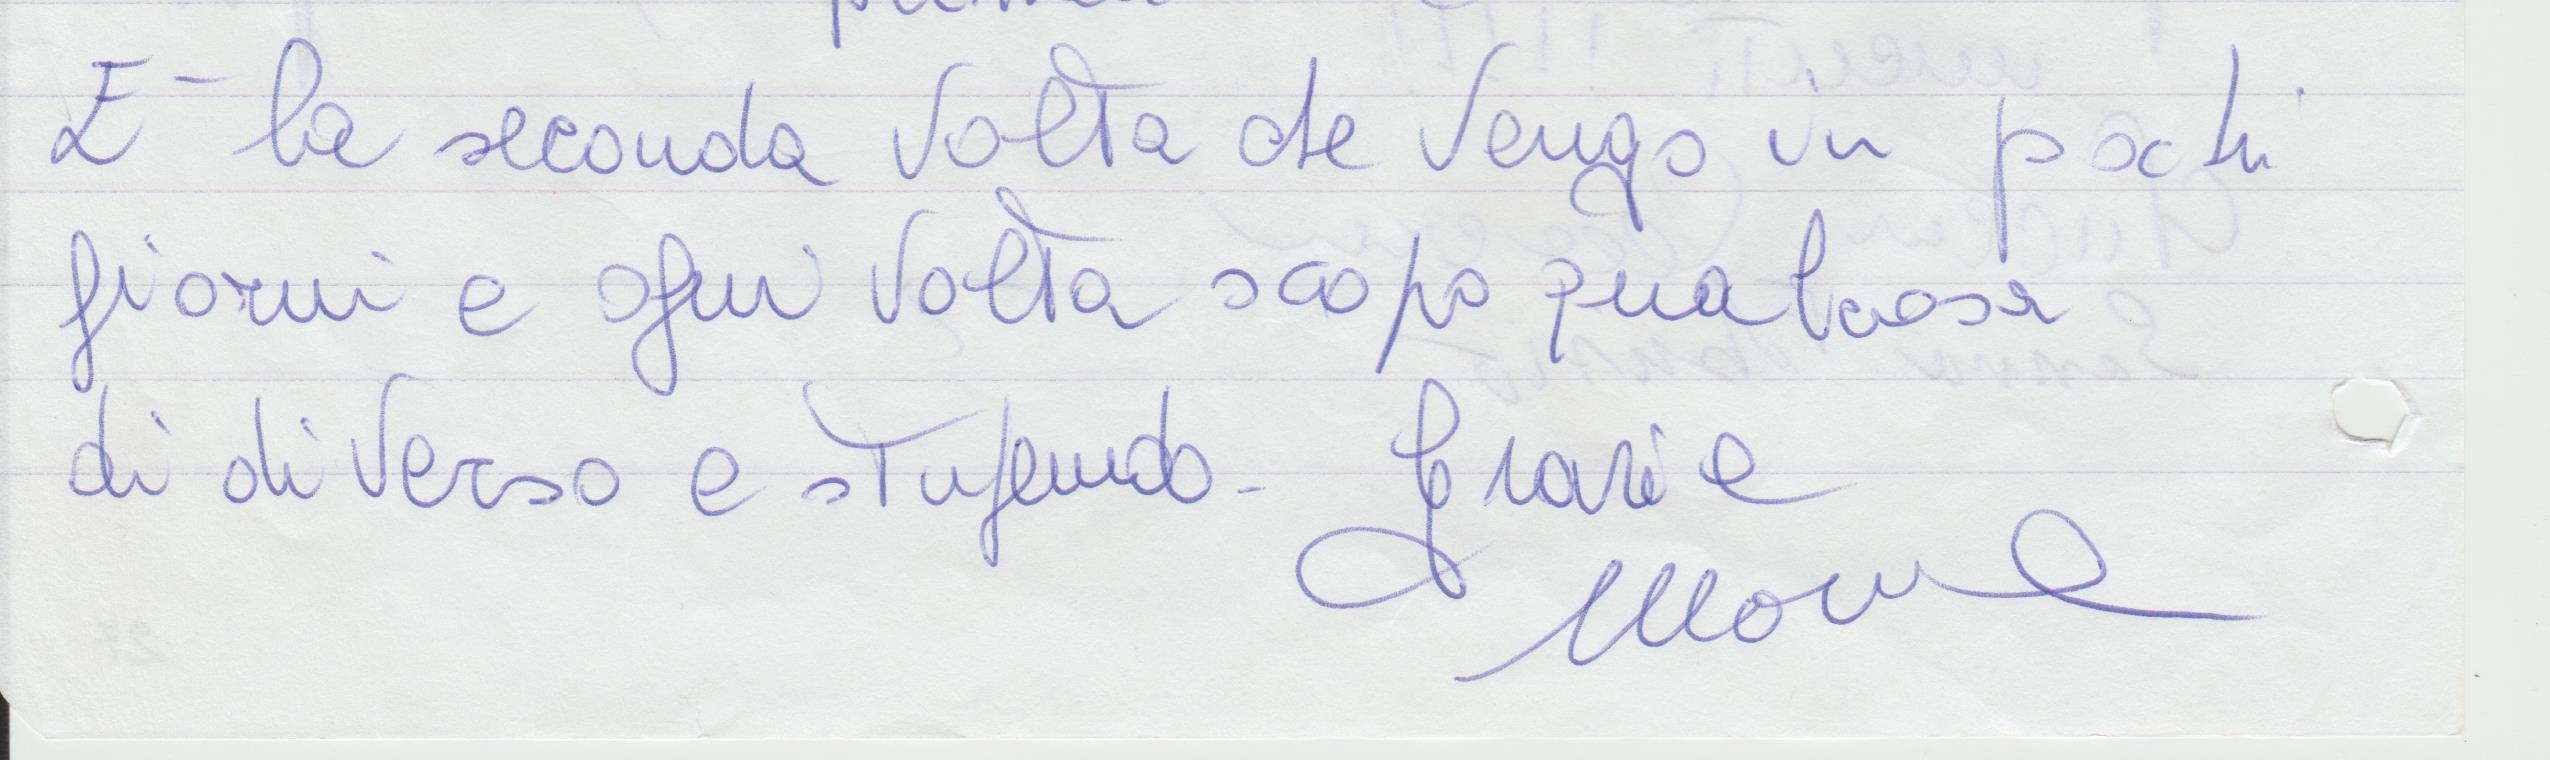 E- la seconda volta che vengo in pochi
giorni e ogni volta scopo qualcosa
di diverso e stupendo - Grazie